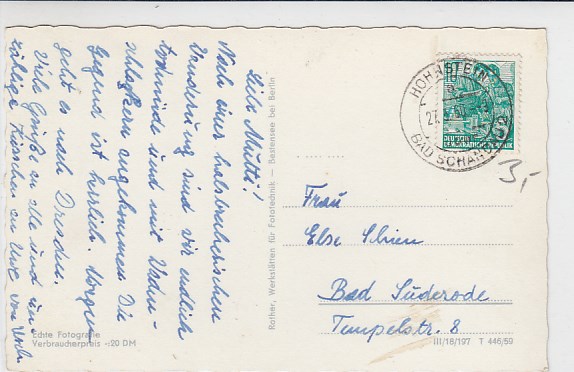 Liebe Mutti!
Nach einer halsbrecherischen
Wanderung sind wir endlich
todmüde und mit Waden-
schlagkern angekommen. Die
Gegend ist herlich. Morgen
geht es nach Dresden.
Viele Grüße an alle und un-
zählige Küsschen an Uwe von
Echte Fotografie
Verbraucherpreis -,20 DM
Rother, Werkstätten für Fototechnik — Bestensee bei Berlin
HOHNSTEIN
BAD SCHAN
27.
10
DEUTSCHE
DEMOKRATISCHE REPUBLIK
3,-
Frau
Else Schien
Bad Suderode
Tempelstr. 8
III/18/197 T 446/59